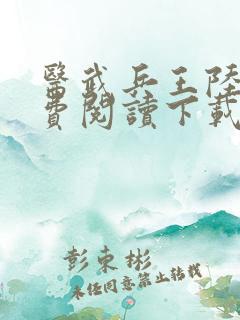 醫武兵王陸
費閱讀下載
彭東彬
未經同意禁止轉載